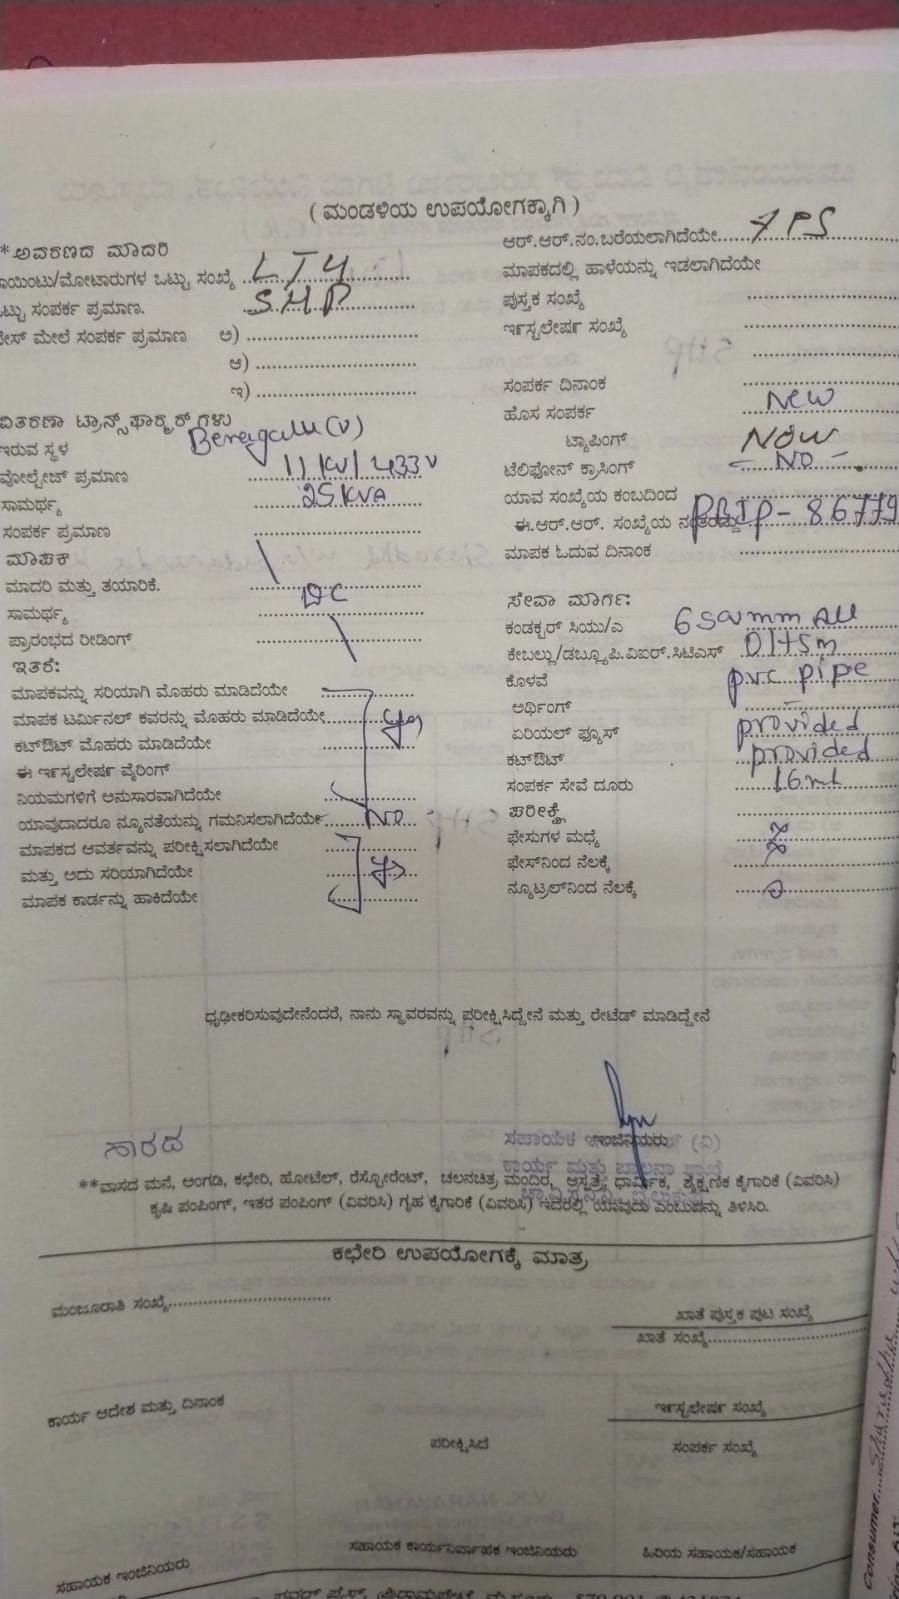 ( ಮಂಡಳಿಯ ಉಪಯೋಗಕ್ಕಾಗಿ )
*ಆವರಣದ ಮಾದರಿ
ಪಾಯಿಂಟು/ಮೋಟಾರುಗಳ ಒಟ್ಟು ಸಂಖ್ಯೆ LT4
ಒಟ್ಟು ಸಂಪರ್ಕ ಪ್ರಮಾಣ. 5HP
ಫೇಸ್ ಮೇಲೆ ಸಂಪರ್ಕ ಪ್ರಮಾಣ ಅ)
ಆ)
ಇ)
ವಿತರಣಾ ಟ್ರಾನ್ಸ್‌ಫಾರ್ಮರ್‌ಗಳು
ಇರುವ ಸ್ಥಳ (V)
ವೋಲ್ಟೇಜ್ ಪ್ರಮಾಣ 11KV/433V
ಸಾಮರ್ಥ್ಯ 25KVA
ಸಂಪರ್ಕ ಪ್ರಮಾಣ
ಮಾಪಕ
ಮಾದರಿ ಮತ್ತು ತಯಾರಿಕೆ.
ಸಾಮರ್ಥ್ಯ DC
ಪ್ರಾರಂಭದ ರೀಡಿಂಗ್
ಇತರೆ:
ಮಾಪಕವನ್ನು ಸರಿಯಾಗಿ ಮೊಹರು ಮಾಡಿದೆಯೇ
ಮಾಪಕ ಟರ್ಮಿನಲ್ ಕವರನ್ನು ಮೊಹರು ಮಾಡಿದೆಯೇ yes
ಕಟ್‌ಔಟ್ ಮೊಹರು ಮಾಡಿದೆಯೇ
ಈ ಇನ್ಸ್ಟಲೇಷನ್ ವೈರಿಂಗ್
ನಿಯಮಗಳಿಗೆ ಅನುಸಾರವಾಗಿದೆಯೇ
ಯಾವುದಾದರೂ ನ್ಯೂನತೆಯನ್ನು ಗಮನಿಸಲಾಗಿದೆಯೇ NO
ಮಾಪಕದ ಆವರ್ತವನ್ನು ಪರೀಕ್ಷಿಸಲಾಗಿದೆಯೇ
ಮತ್ತು ಅದು ಸರಿಯಾಗಿದೆಯೇ yes
ಮಾಪಕ ಕಾರ್ಡನ್ನು ಹಾಕಿದೆಯೇ
ಆರ್.ಆರ್.ನಂ.ಬರೆಯಲಾಗಿದೆಯೇ
ಮಾಪಕದಲ್ಲಿ ಹಾಳೆಯನ್ನು ಇಡಲಾಗಿದೆಯೇ
ಪುಸ್ತಕ ಸಂಖ್ಯೆ
ಇನ್ಸ್ಟಲೇಷನ್ ಸಂಖ್ಯೆ
ಸಂಪರ್ಕ ದಿನಾಂಕ
ಹೊಸ ಸಂಪರ್ಕ New
ಟ್ಯಾಪಿಂಗ್ New
ಟೆಲಿಫೋನ್ ಕ್ರಾಸಿಂಗ್ - NO -
ಯಾವ ಸಂಖ್ಯೆಯ ಕಂಬದಿಂದ
ಈ.ಆರ್.ಆರ್. ಸಂಖ್ಯೆಯ ನಂತರದ್ದು - 86779
ಮಾಪಕ ಓದುವ ದಿನಾಂಕ
ಸೇವಾ ಮಾರ್ಗ:
ಕಂಡಕ್ಟರ್ ಸಿಯು/ಎ 6 sqvmm
ಕೇಬಲ್ಲು/ಡಬ್ಲ್ಯೂ.ಪಿ.ವಿಐಆರ್.ಸಿಟಿಎಸ್
ಕೊಳವೆ pvc pipe
ಅರ್ಥಿಂಗ್
ಏರಿಯಲ್ ಫ್ಯೂಸ್ provided
ಕಟ್‌ಔಟ್ provided
ಸಂಪರ್ಕ ಸೇವೆ ದೂರು 16mt
ಪರೀಕ್ಷೆ
ಫೇಸುಗಳ ಮಧ್ಯೆ
ಫೇಸ್‌ನಿಂದ ನೆಲಕ್ಕೆ
ನ್ಯೂಟ್ರಲ್‌ನಿಂದ ನೆಲಕ್ಕೆ 0
ಧೃಢೀಕರಿಸುವುದೇನೆಂದರೆ, ನಾನು ಸ್ಥಾವರವನ್ನು ಪರೀಕ್ಷಿಸಿದ್ದೇನೆ ಮತ್ತು ರೇಟೆಡ್ ಮಾಡಿದ್ದೇನೆ
ಶಾರದ
ಸಹಾಯಕ ಇಂಜಿನಿಯರು (ವಿ)
ಕಾರ್ಯ ಮತ್ತು ಪಾಲನಾ ಶಾಖೆ
**ವಾಸದ ಮನೆ, ಅಂಗಡಿ, ಕಛೇರಿ, ಹೋಟೆಲ್, ರೆಸ್ಟೋರೆಂಟ್, ಚಲನಚಿತ್ರ ಮಂದಿರ, ಆಸ್ಪತ್ರೆ, ಧಾರ್ಮಿಕ, ಶೈಕ್ಷಣಿಕ ಕೈಗಾರಿಕೆ (ವಿವರಿಸಿ)
ಕೃಷಿ ಪಂಪಿಂಗ್, ಇತರ ಪಂಪಿಂಗ್ (ವಿವರಿಸಿ) ಗೃಹ ಕೈಗಾರಿಕೆ (ವಿವರಿಸಿ) ಇದರಲ್ಲಿ ಯಾವುದು ಎಂಬುದನ್ನು ತಿಳಿಸಿರಿ.
ಕಛೇರಿ ಉಪಯೋಗಕ್ಕೆ ಮಾತ್ರ
ಮಂಜೂರಾತಿ ಸಂಖ್ಯೆ
ಖಾತೆ ಪುಸ್ತಕ ಪುಟ ಸಂಖ್ಯೆ
ಖಾತೆ ಸಂಖ್ಯೆ
ಕಾರ್ಯ ಆದೇಶ ಮತ್ತು ದಿನಾಂಕ
ಇನ್ಸ್ಟಲೇಷನ್ ಸಂಖ್ಯೆ
ಪರೀಕ್ಷಿಸಿದೆ
ಸಂಪರ್ಕ ಸಂಖ್ಯೆ
ಸಹಾಯಕ ಇಂಜಿನಿಯರು
ಸಹಾಯಕ ಕಾರ್ಯನಿರ್ವಾಹಕ ಇಂಜಿನಿಯರು
ಹಿರಿಯ ಸಹಾಯಕ/ಸಹಾಯಕ
Consumer